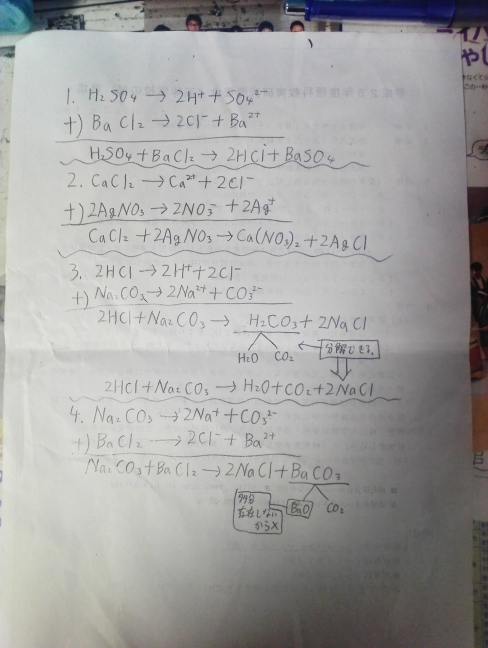 1. H₂SO₄ → 2H⁺ + SO₄²⁻
+) BaCl₂ → 2Cl⁻ + Ba²⁺
H₂SO₄ + BaCl₂ → 2HCl + BaSO₄
2. CaCl₂ → Ca²⁺ + 2Cl⁻
+) 2AgNO₃ → 2NO₃⁻ + 2Ag⁺
CaCl₂ + 2AgNO₃ → Ca(NO₃)₂ + 2AgCl
3. 2HCl → 2H⁺ + 2Cl⁻
+) Na₂CO₃ → 2Na²⁺ + CO₃²⁻
2HCl + Na₂CO₃ → H₂CO₃ + 2NaCl
H₂O CO₂ ← 分解できる。
2HCl + Na₂CO₃ → H₂O + CO₂ + 2NaCl
4. Na₂CO₃ → 2Na⁺ + CO₃²⁻
+) BaCl₂ → 2Cl⁻ + Ba²⁺
Na₂CO₃ + BaCl₂ → 2NaCl + BaCO₃
BaO CO₂
多分
存在しない
から×